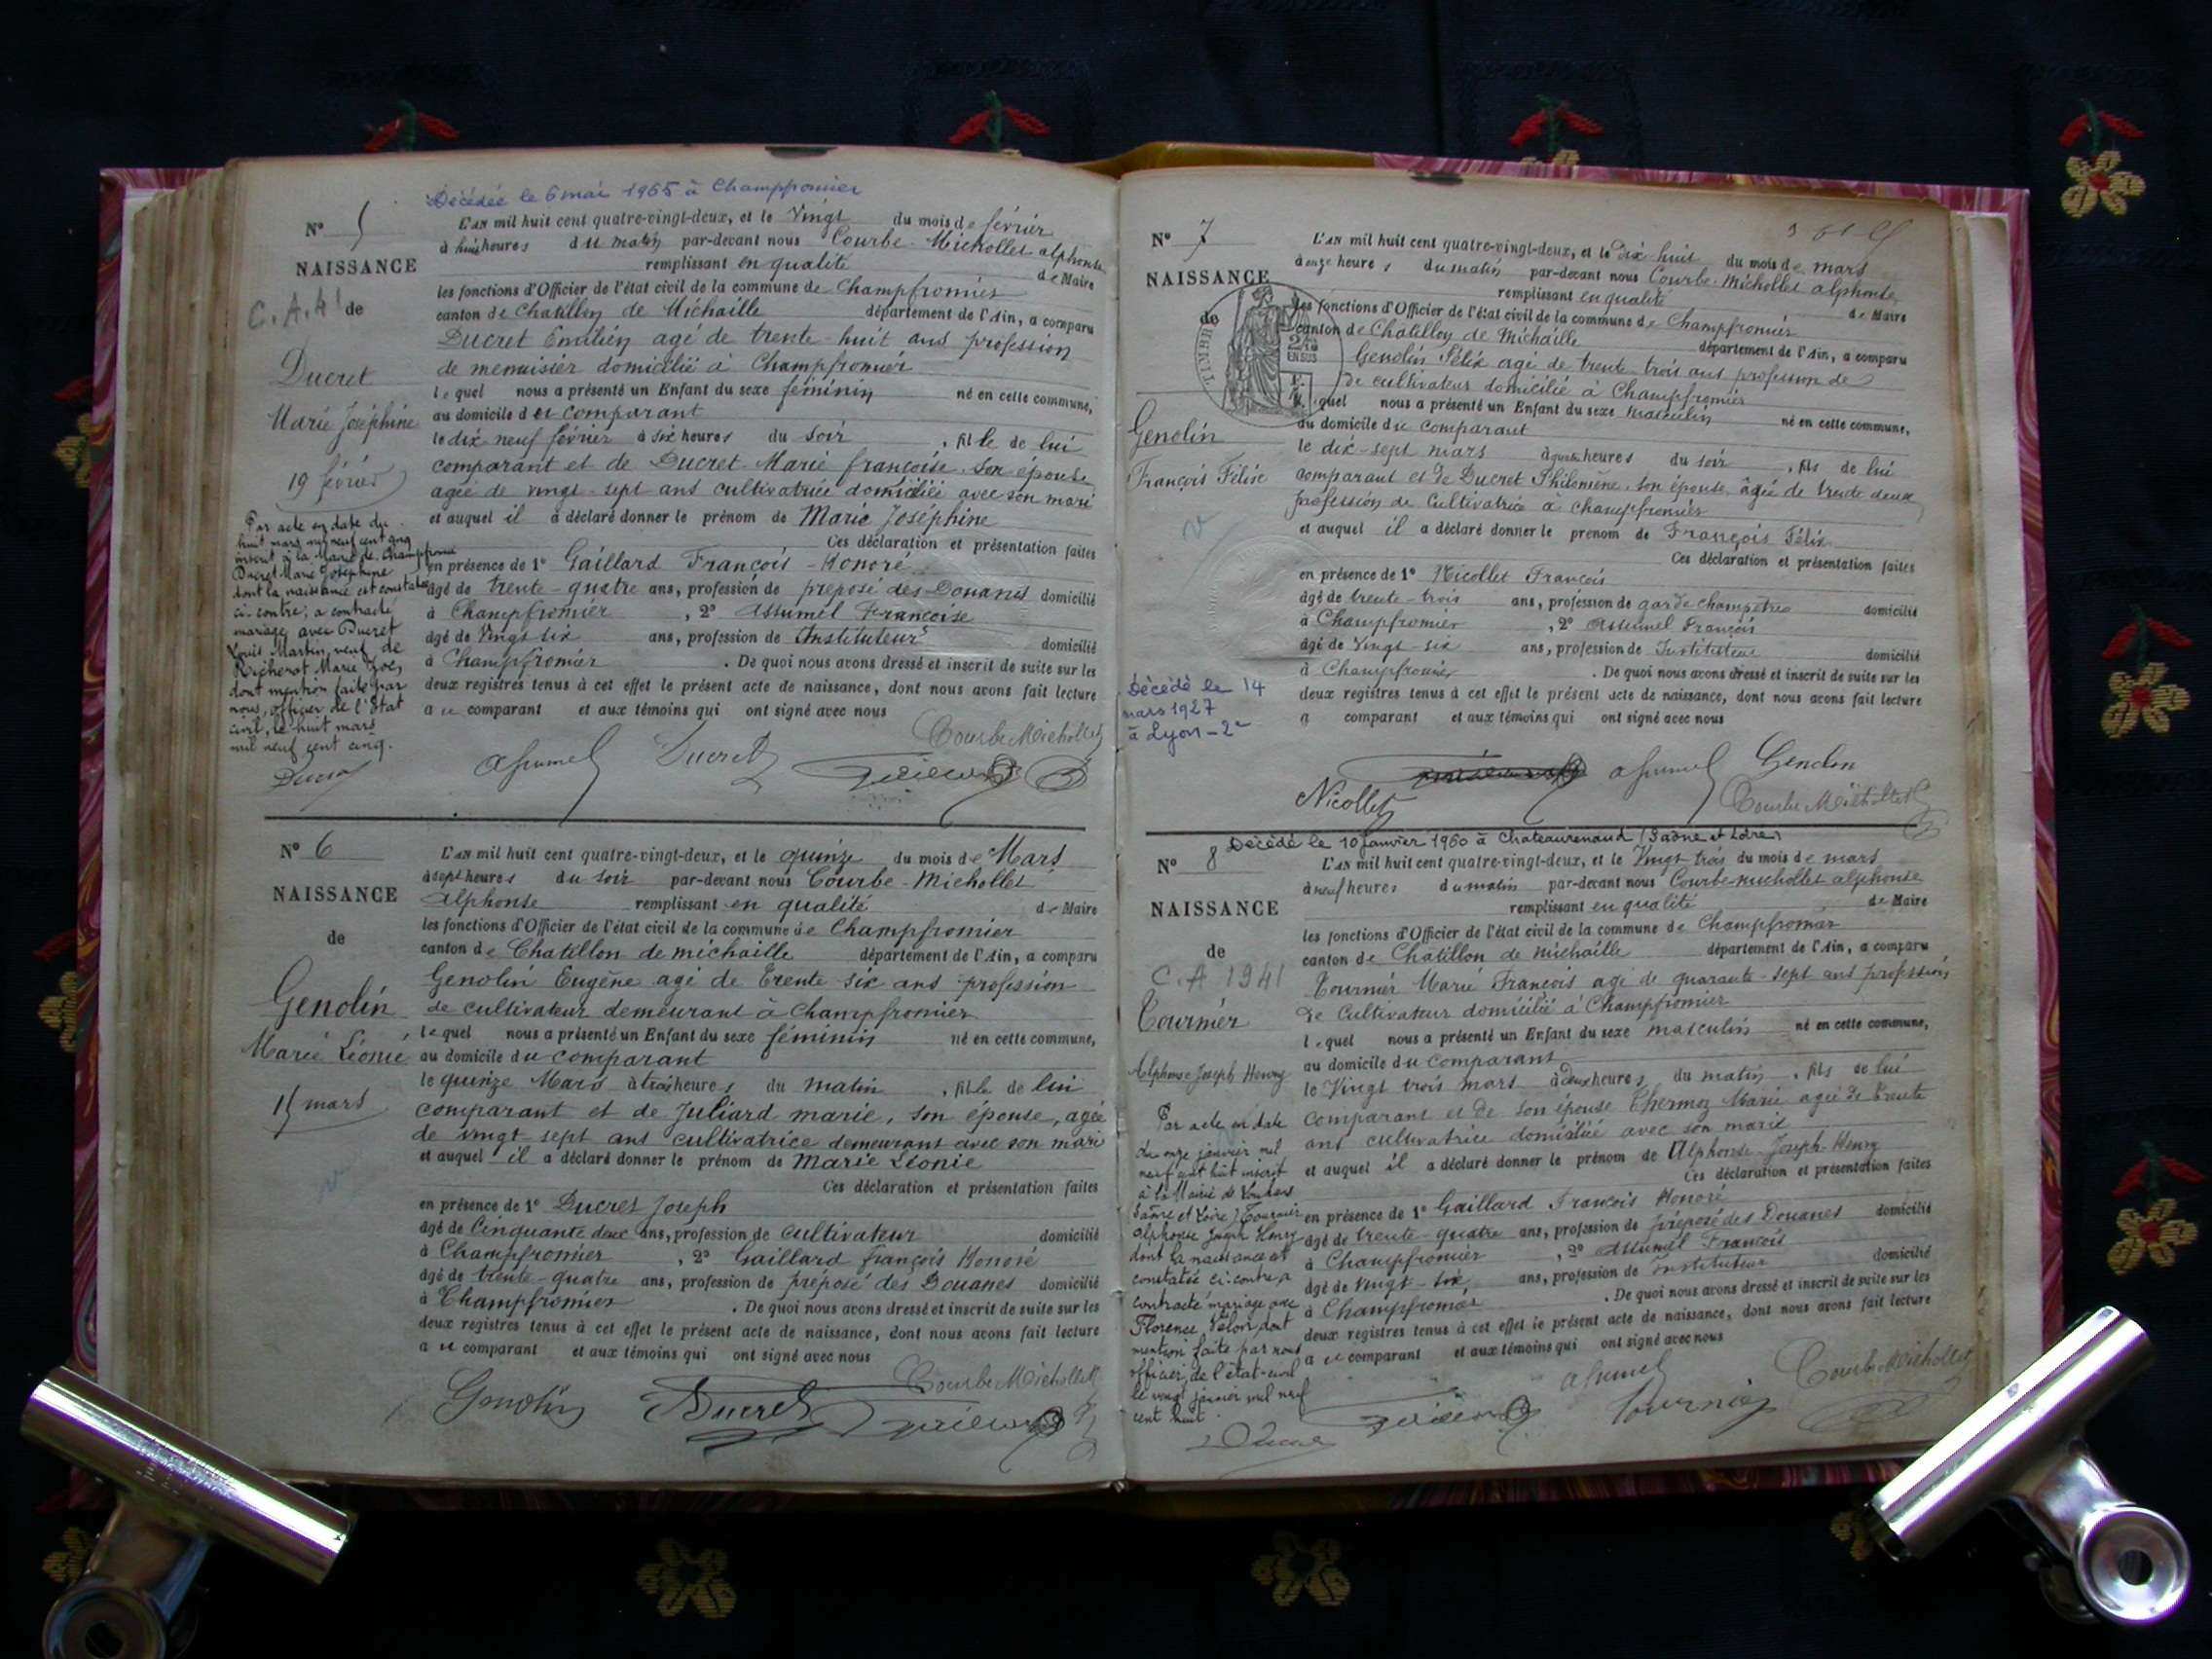 Décédée le 6 mai 1965 à Champfromier
N° 5
NAISSANCE
C.A.41 de
Ducret
Marie Joséphine
19 février
Par acte en date du
huit mars mil neuf cent cinq
inscrit à la Mairie de Champfromier
Ducret Marie Joséphine
dont la naissance est constatée
ci-contre, a contracté
mariage avec Ducret
Louis Martin, veuf de
Richerot Marie Zoé,
dont mention faite par
nous, officier de l'Etat
civil, le huit mars
mil neuf cent cinq.
Ducret
L'AN mil huit cent quatre-vingt-deux, et le Vingt du mois de février
à huit heures du matin par-devant nous Courbe-Michollet alphonse
remplissant en qualité de Maire
les fonctions d'Officier de l'état civil de la commune de Champfromier
canton de Chatillon de Michaille département de l'Ain, a comparu
Ducret Emilien agé de trente-huit ans profession
de menuisier domicilié à Champfromier
lequel nous a présenté un Enfant du sexe féminin né en cette commune,
au domicile du comparant
le dix neuf février à six heures du soir, fille de lui
comparant et de Ducret Marie françoise son épouse
agée de vingt-sept ans cultivatrice domiciliée avec son mari
et auquel il a déclaré donner le prénom de Marie Joséphine
Ces déclaration et présentation faites
en présence de 1° Gaillard François-Honoré
âgé de trente-quatre ans, profession de préposé des Douanes domicilié
à Champfromier, 2° Assumel Françoise
âgé de Vingt six ans, profession de Instituteur domicilié
à Champfromier. De quoi nous avons dressé et inscrit de suite sur les
deux registres tenus à cet effet le présent acte de naissance, dont nous avons fait lecture
au comparant et aux témoins qui ont signé avec nous
Courbe Michollet
Assumel Ducret
N° 6
NAISSANCE
de
Genolin
Marie Léonie
15 mars
L'AN mil huit cent quatre-vingt-deux, et le quinze du mois de Mars
à sept heures du soir par-devant nous Courbe-Michollet
Alphonse remplissant en qualité de Maire
les fonctions d'Officier de l'état civil de la commune de Champfromier
canton de Chatillon de michaille département de l'Ain, a comparu
Genolin Eugène agé de trente six ans profession
de cultivateur demeurant à Champfromier
lequel nous a présenté un Enfant du sexe féminin né en cette commune,
au domicile du comparant
le quinze Mars à trois heures du matin, fille de lui
comparant et de Juliard marie, son épouse, agée
de vingt-sept ans cultivatrice demeurant avec son mari
et auquel il a déclaré donner le prénom de Marie Léonie
Ces déclaration et présentation faites
en présence de 1° Ducret Joseph
âgé de Cinquante deux ans, profession de cultivateur domicilié
à Champfromier, 2° Gaillard françois Honoré
âgé de trente-quatre ans, profession de préposé des Douanes domicilié
à Champfromier. De quoi nous avons dressé et inscrit de suite sur les
deux registres tenus à cet effet le présent acte de naissance, dont nous avons fait lecture
au comparant et aux témoins qui ont signé avec nous
Courbe Michollet
Genolin Ducret
N° 7
NAISSANCE
de
TIMBRE
2/10
EN SUS
Genolin
François Félix
Décédé le 14
mars 1927
à Lyon-2e
L'AN mil huit cent quatre-vingt-deux, et le Dix-huit du mois de mars
à onze heures du matin par-devant nous Courbe-Michollet alphonse
remplissant en qualité de Maire
les fonctions d'Officier de l'état civil de la commune de Champfromier
canton de Chatillon de Michaille département de l'Ain, a comparu
Genolin Félix agé de trente-trois ans profession de
de cultivateur domicilié à Champfromier
lequel nous a présenté un Enfant du sexe masculin né en cette commune,
au domicile du comparant
le dix-sept mars à quatre heures du soir, fils de lui
comparant et de Ducret Philomène son épouse agée de trente deux
profession de Cultivatrice à Champfromier
et auquel il a déclaré donner le prénom de François Félix
Ces déclaration et présentation faites
en présence de 1° Nicollet François
âgé de trente-trois ans, profession de garde champêtre domicilié
à Champfromier, 2° Assumel François
âgé de Vingt-six ans, profession de Instituteur domicilié
à Champfromier. De quoi nous avons dressé et inscrit de suite sur les
deux registres tenus à cet effet le présent acte de naissance, dont nous avons fait lecture
a comparant et aux témoins qui ont signé avec nous
Assumel Genolin
Nicollet Courbe Michollet
Décédé le 10 janvier 1960 à Chateaurenaud (Saône et Loire)
N° 8
NAISSANCE
de
C.A 1941
Tournier
Alphonse Joseph Henry
Par acte en date
du onze janvier mil
neuf cent huit inscrit
à la Mairie de
Saône et Loire, Tournier
alphonse Joseph Henry
dont la naissance est
constatée ci-contre a
contracté mariage avec
Florence Velon dont
mention faite par nous
officier de l'état-civil
le vingt janvier mil neuf
cent huit.
Ducret
L'AN mil huit cent quatre-vingt-deux, et le Vingt trois du mois de mars
à neuf heures du matin par-devant nous Courbe-michollet alphonse
remplissant en qualité de Maire
les fonctions d'Officier de l'état civil de la commune de Champfromier
canton de Chatillon de michaille département de l'Ain, a comparu
Tournier Marie François agé de quarante-sept ans profession
de Cultivateur domicilié à Champfromier
lequel nous a présenté un Enfant du sexe masculin né en cette commune,
au domicile du comparant
le Vingt trois mars à deux heures du matin, fils de lui
comparant et de son épouse Thermoz Marie agée de trente
ans cultivatrice domiciliée avec son mari
et auquel il a déclaré donner le prénom de Alphonse-Joseph-Henry
Ces déclaration et présentation faites
en présence de 1° Gaillard François Honoré
âgé de trente-quatre ans, profession de préposé des Douanes domicilié
à Champfromier, 2° Assumel François
âgé de Vingt-six ans, profession de Instituteur domicilié
à Champfromier. De quoi nous avons dressé et inscrit de suite sur les
deux registres tenus à cet effet le présent acte de naissance, dont nous avons fait lecture
au comparant et aux témoins qui ont signé avec nous
Assumel Courbe Michollet
Tournier